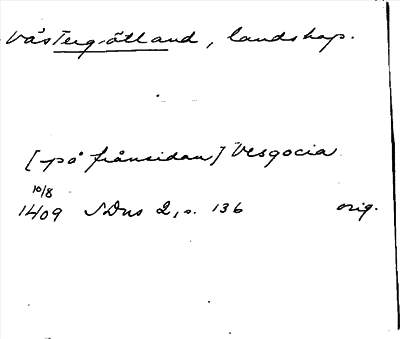 Västergötland, landskap.
[på frånsidan] Vesgocia
10/8
1409 SDns 2, s. 136 orig.